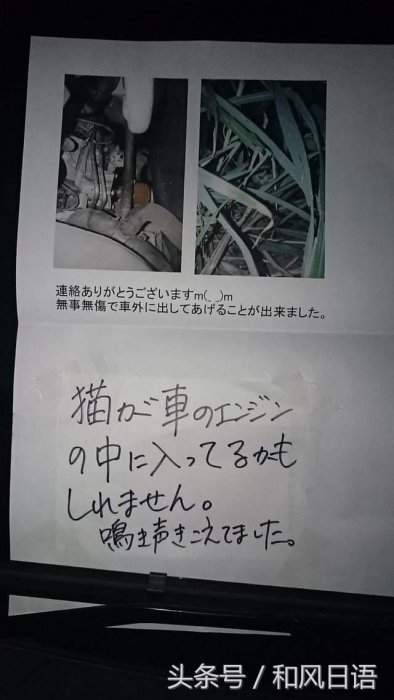 連絡ありがとうございますm(_ _)m
無事無傷で車外に出してあげることが出来ました。
猫が車のエンジン
の中に入ってるかも
しれません。
鳴き声きこえてました。
头条号 / 和风日语